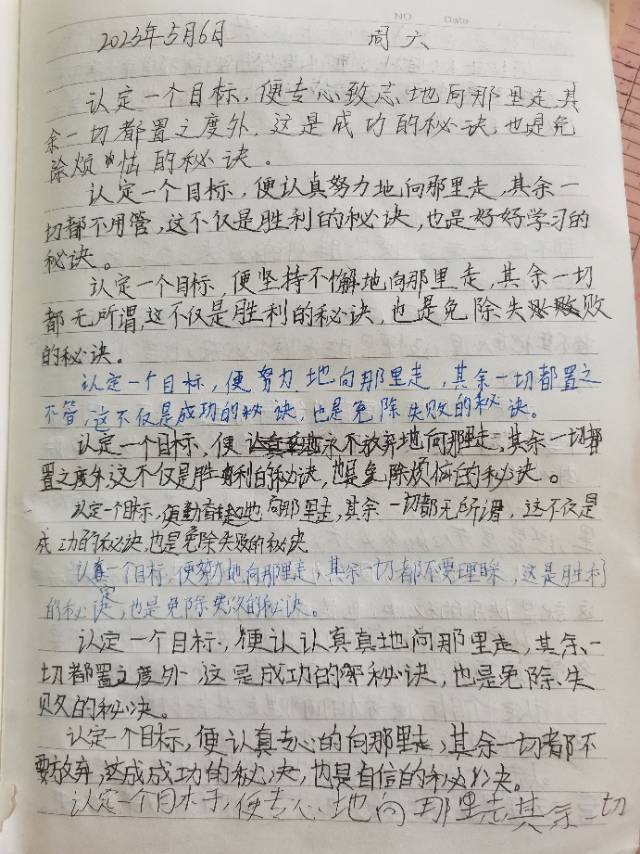 2023年5月6日 周六
认定一个目标,便专心致志地向那里走,其
余一切都置之度外。这是成功的秘诀,也是免
除烦恼的秘诀。
认定一个目标,便认真努力地向那里走,其余一
切都不用管,这不仅是胜利的秘诀,也是好好学习的
秘诀。
认定一个目标,便坚持不懈地向那里走,其余一切
都无所谓,这不仅是胜利的秘诀,也是免除失败
的秘诀。
认定一个目标,便努力地向那里走,其余一切都置之
不管,这不仅是成功的秘诀,也是免除失败的秘诀。
认定一个目标,便永不放弃地向那里走,其余一切都
置之度外这不仅是胜利的秘诀,也是免除烦恼的秘诀。
认定一个目标,便地向那里走,其余一切都无所谓,这不仅是
成功的秘诀也是免除失败的秘诀
认真一个目标,便努力地向那里走,其余一切都不要理睬,这是胜利
的秘诀,也是免除失败的秘诀。
认定一个目标,便认认真真地向那里走,其余一
切都置之度外 这是成功的秘诀,也是免除失
败的秘诀。
认定一个目标,便认真专心的向那里走,其余一切都不
要放弃,这成成功的秘诀,也是自信的秘诀。
认定一个目标,便专心地向那里走其余一切